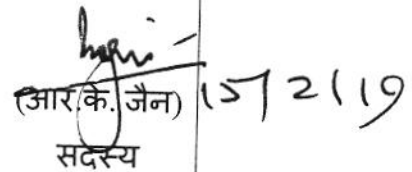 (आर.के. जैन) 15/2/19
सदस्य